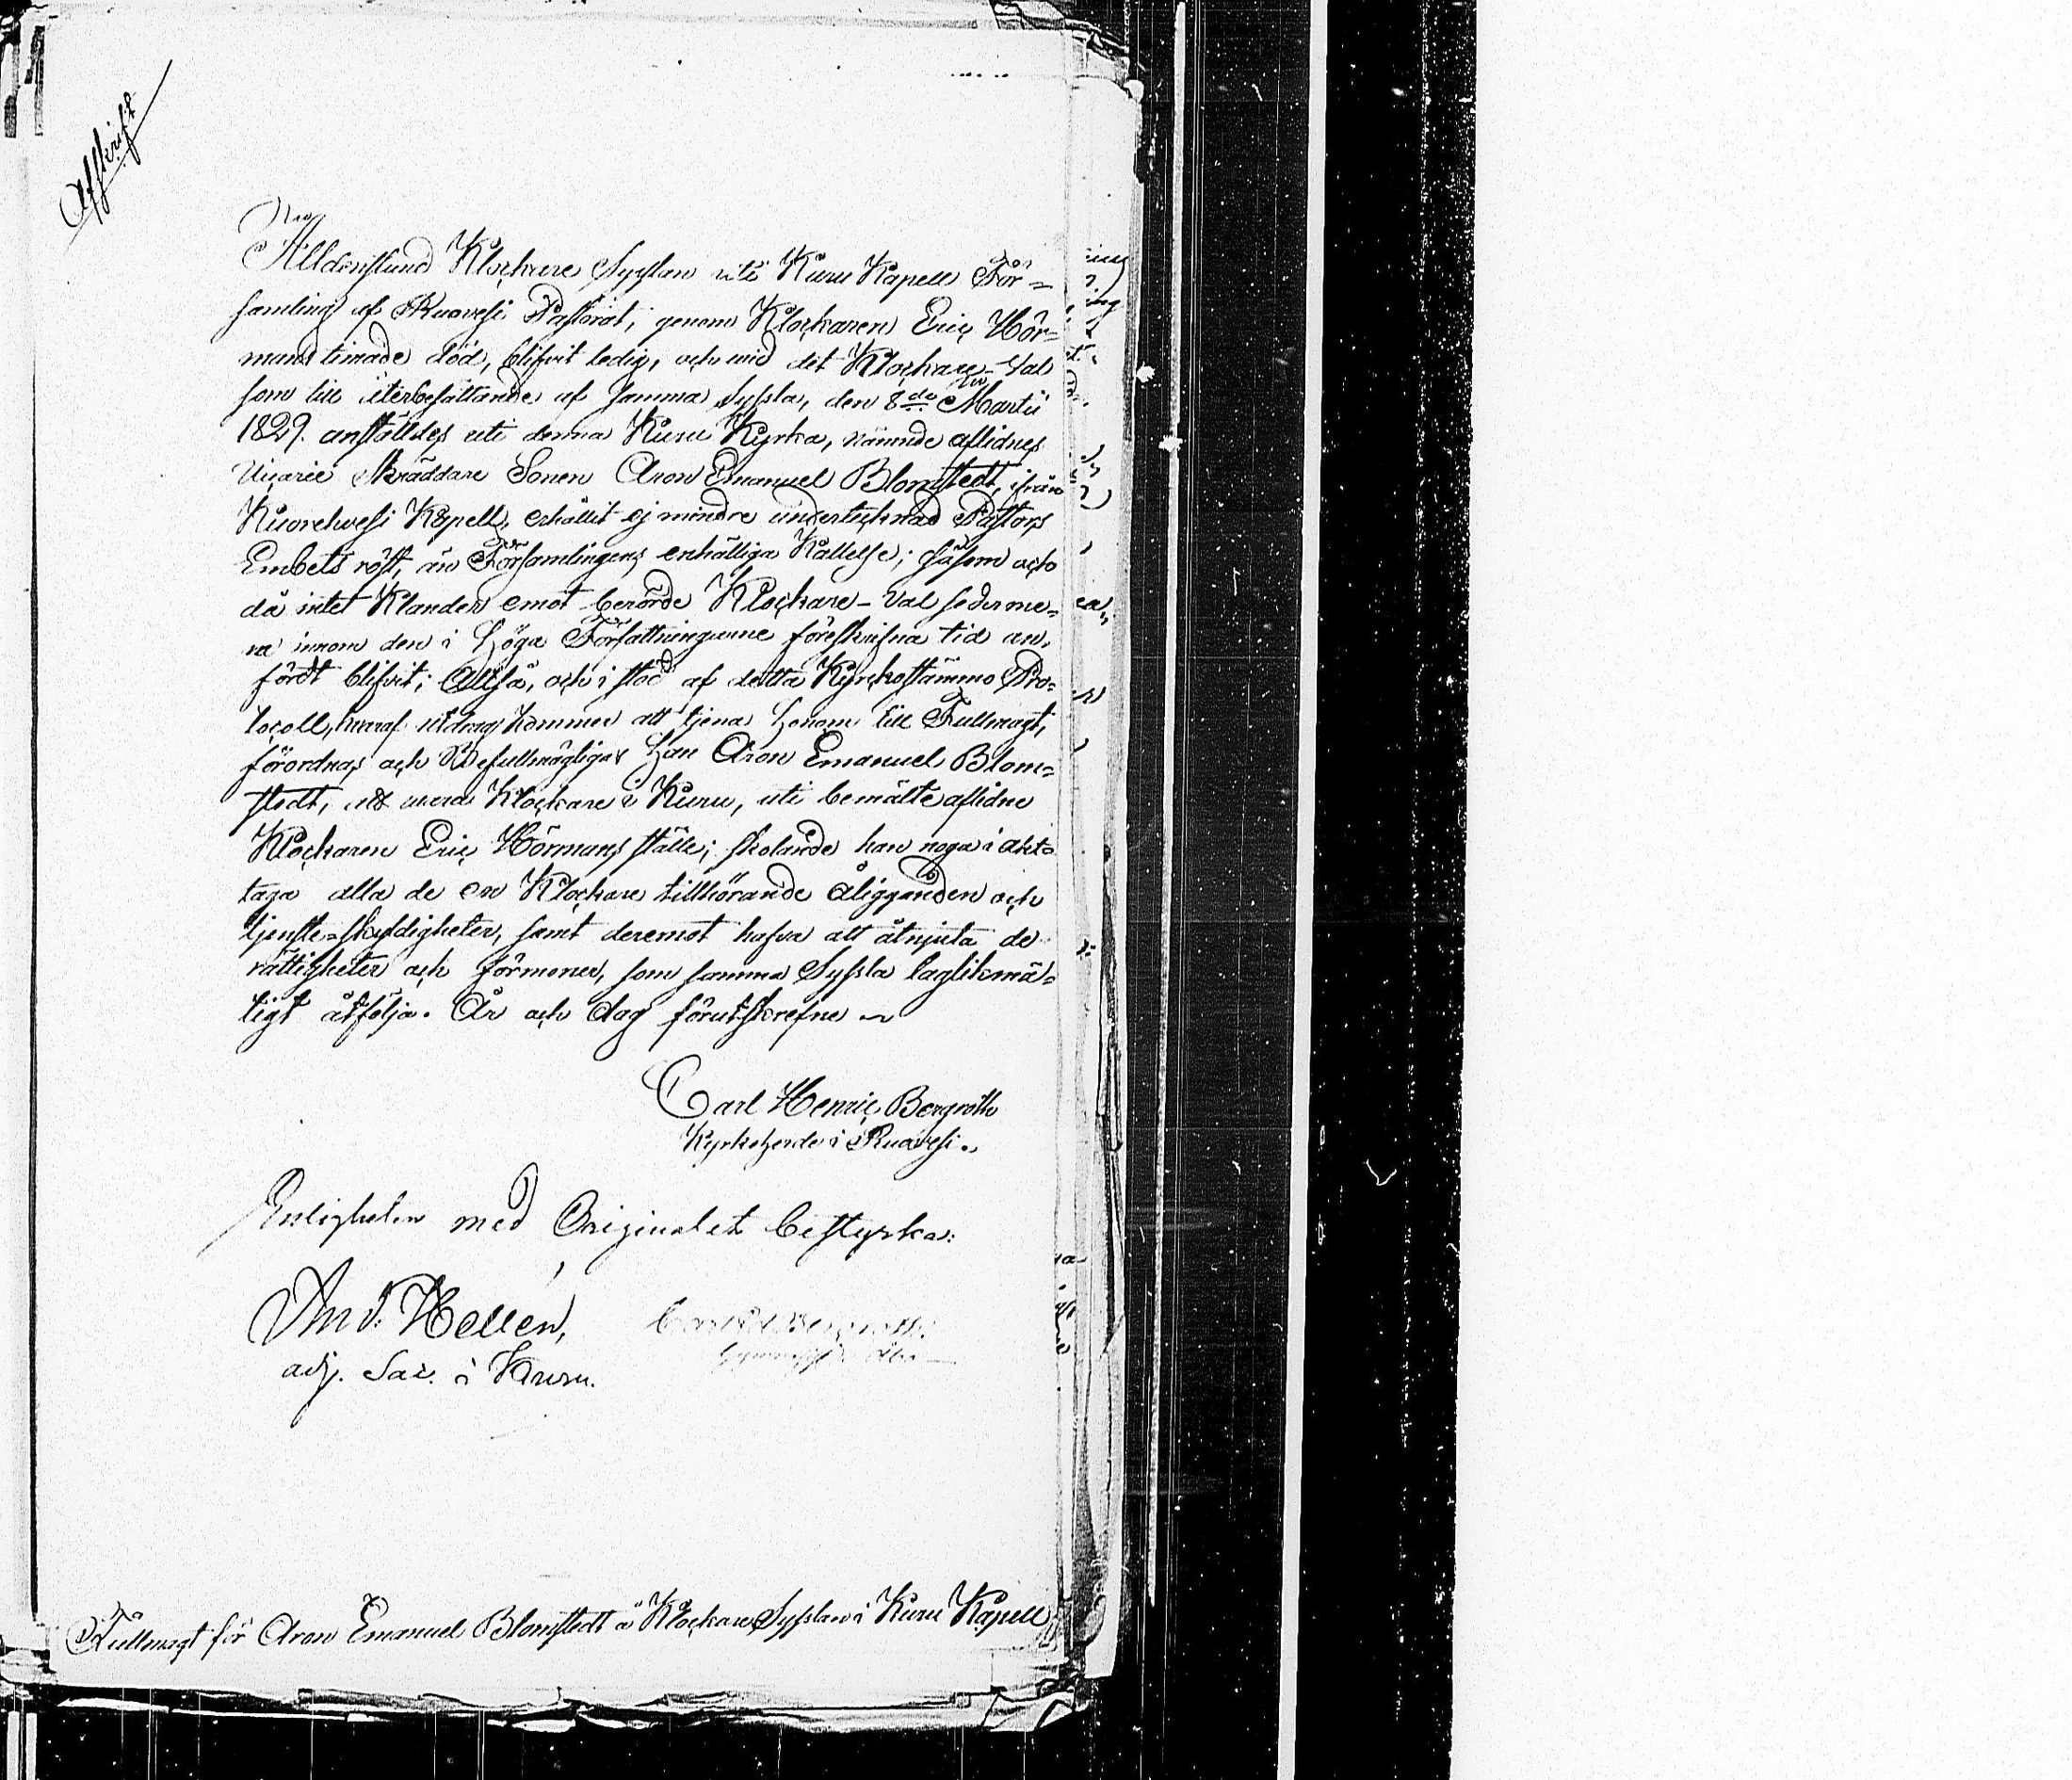 Afskrift
Alldenstund Klockare Sysslan uti Kuru Kapell För=
samling af Ruovesi Pastorat, genom Klockaren Eric Hör=
mans timade död, blifvit ledig, och vid det Klockare-Val
som till återbesättande af samma Syssla, den 8de Martii
1829. anställdes uti denna Kuru Kyrka, nämnde aflidnes
Vicarie Skräddare Sonen Aron Emanuel Blomstedt, ifrån
Kuorehvesi Kapell, erhållit ej mindre undertecknad Pastors
Embets röst, än Församlingens enhälliga Kallelse; såsom och
då intet Klander emot berörde Klockare-Val sederme=
ra innom den i Höga Författningarne föreskrifna tid an,
fördt blifvit; Altså, och i stöd af detta Kyrkostämmo Pro=
tocoll, hvaraf utdrag kommer att tjena honom till Fullmagt,
förordnas och Befullmägtigas han Aron Emanuel Blom=
stedt, att vara Klockare i Kuru, uti bemälte aflidne
Klockaren Eric Hörmans ställe; skolande han noga i akt=
taga alla de en Klockare tillhörande åligganden och
tjenste=skyldigheter, samt deremot hafva att åtnjuta de
rättigheter och förmoner, som samma Syssla lagliksmä=
tigt åtfölja. År och dag förutskrefne
Carl Henric Bergroth
Kyrkoherde i Ruovesi.
Enligheten med Originalet bestyrka:
And. Hellén,
adj. Sac. i Kuru.
Fullmagt för Aron Emanuel Blomstedt å Klockare Sysslan i Kuru Kapell